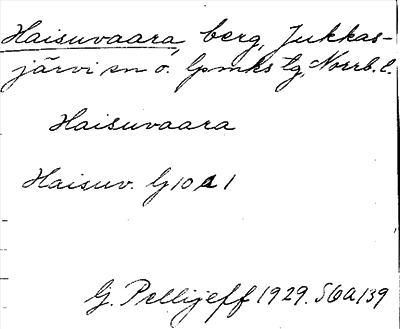 Haisuvaara, berg, Jukkas-
järvi sn o. lpmks tg, Norrb. l.
Haisuvaara
Haisuv. G10 a 1
G. Pellijeff 1929. S6A139